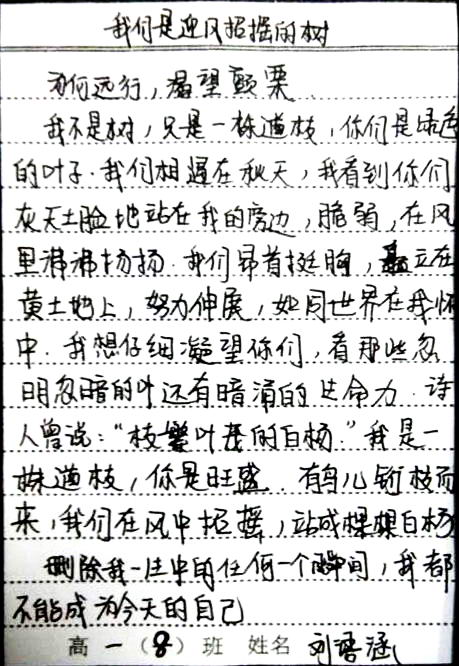 我们是迎风招摇的树
为何远行，渴望颤栗
我不是树，只是一株道枝，你们是绿色
的叶子.我们相遇在秋天，我看到你们
灰天土脸地站在我的旁边，脆弱，在风
里沸沸扬扬.我们昂首挺胸，矗立在
黄土地上，努力伸展，如同世界在我怀
中.我想仔细凝望你们，看那些忽
明忽暗的叶还有暗涌的生命力.诗
人曾说："枝繁叶茂的白杨."我是一
株道枝，你是旺盛.有鸟儿衔枝而
来，我们在风中招摇，站成棵棵白杨
删除我一生中的任何一个瞬间，我都
不能成为今天的自己
高一（8）班 姓名 刘语涵